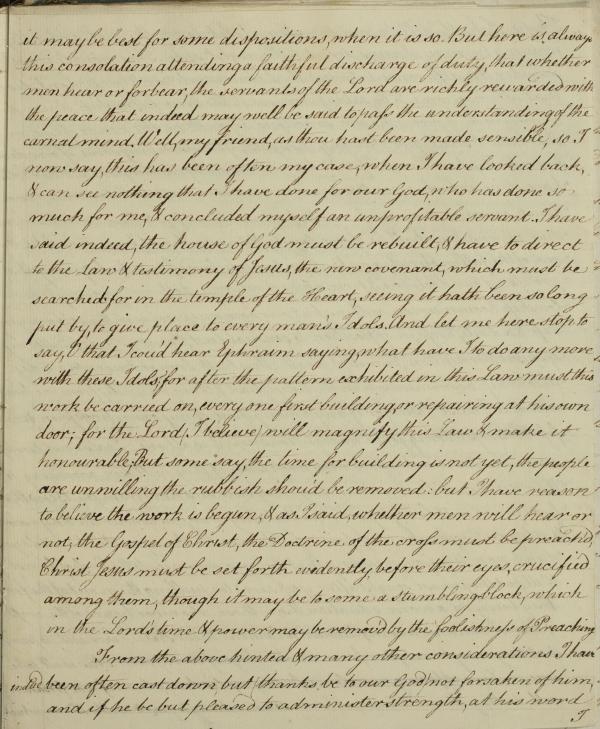 it may be best for some dispositions, when it is so. But here is always
this consolation attending a faithful discharge of duty, that whether
men hear or forbear, the servants of the Lord are richly rewarded with
the peace that indeed may well be said to pass the understanding of the
carnal mind. Well, my friend, as thou hast been made sensible, so I
now say, this has been often my case, when I have looked back,
& can see nothing that I have done for our God, who has done so
much for me, & concluded myself an unprofitable servant. I have
said indeed, the house of God must be rebuilt, & have to direct
to the Law & testimony of Jesus, the new covenant, which must be
searched for in the temple of the Heart, seeing it hath been so long
put by, to give place to every man's Idols. And let me here stop to
say, O that I cou'd hear Ephraim saying, what have I to do any more
with these Idols, for after the pattern exhibited in this Law must this
work be carried on, every one first building or repairing at his own
door; for the Lord (I believe) will magnify this Law & make it
honourable, But some say, the time for building is not yet, the people
are unwilling the rubbish shou'd be removed: but I have reason
to believe the work is begun, & as I said, whether men will hear or
not, the Gospel of Christ, the Doctrine of the cross must be preached,
Christ Jesus must be set forth evidently before their eyes, crucified
among them, though it may be to some a stumbling-block, which
in the Lord's time & power may be remov'd by the foolishness of Preaching
From the above hinted & many other considerations I have
indeed been often cast down but (thanks be to our God) not forsaken of him,
and if he be but pleased to administer strength, at his word
I